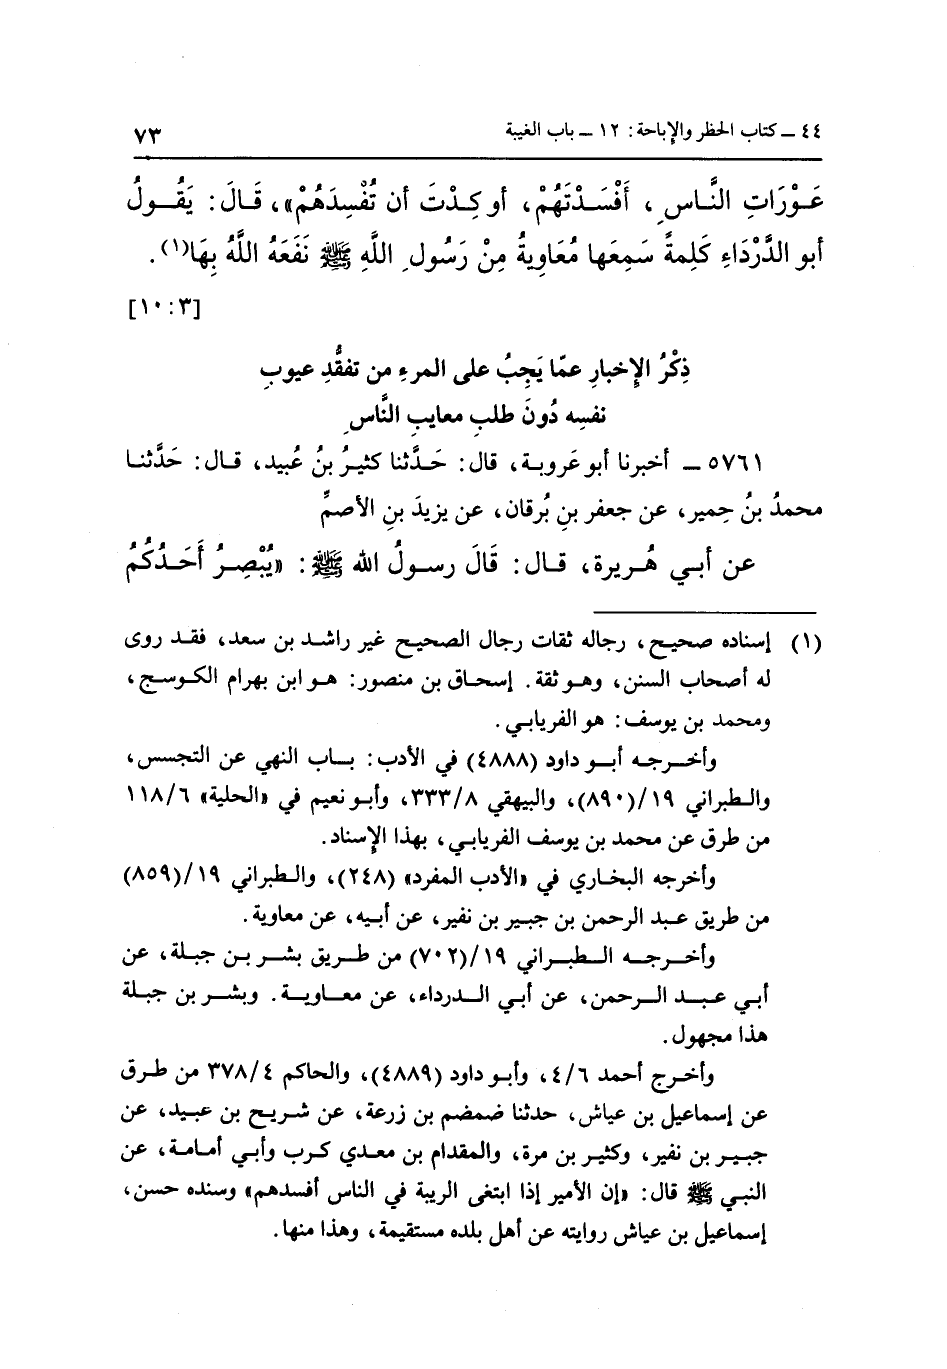 ٤٤ ــ كتاب الحظر والإباحة: ١٢ ــ باب الغيبة ٧٣
عَوْرَاتِ النَّاسِ، أَفْسَدْتَهُمْ، أو كِدْتَ أن تُفْسِدَهُمْ»، قَالَ: يَقُولُ
أبو الدَّرْدَاءِ كَلِمةً سَمِعَها مُعَاوِيةُ مِنْ رَسُولِ اللَّهِ ﷺ نَفَعَهُ اللَّهُ بِهَا(١).
[٣:١٠]
ذِكْرُ الإِخبارِ عمّا يَجِبُ على المرءِ من تفقُّدِ عيوبِ
نفسِه دُونَ طلبِ معايبِ النَّاسِ
٥٧٦١ ــ أخبرنا أبو عَروبة، قال: حَدَّثنا كثيرُ بنُ عُبيد، قال: حَدَّثنا
محمدُ بنُ حِمير، عن جعفر بنِ بُرقان، عن يزيدَ بنِ الأصمِّ
عن أبي هُريرة، قال: قَالَ رسولُ الله ﷺ: «يُبْصِرُ أَحَدُكُمُ
(١) إسناده صحيح، رجاله ثقات رجال الصحيح غير راشد بن سعد، فقد روى
له أصحاب السنن، وهو ثقة. إسحاق بن منصور: هو ابن بهرام الكوسج،
ومحمد بن يوسف: هو الفريابي.
وأخرجه أبو داود (٤٨٨٨) في الأدب: باب النهي عن التجسس،
والطبراني ١٩/(٨٩٠)، والبيهقي ٣٣٣/٨، وأبو نعيم في «الحلية» ١١٨/٦
من طرق عن محمد بن يوسف الفريابي، بهذا الإسناد.
وأخرجه البخاري في «الأدب المفرد» (٢٤٨)، والطبراني ١٩/(٨٥٩)
من طريق عبد الرحمن بن جبير بن نفير، عن أبيه، عن معاوية.
وأخرجه الطبراني ١٩/(٧٠٢) من طريق بشر بن جبلة، عن
أبي عبد الرحمن، عن أبي الدرداء، عن معاوية. وبشر بن جبلة
هذا مجهول.
وأخرج أحمد ٤/٦، وأبو داود (٤٨٨٩)، والحاكم ٣٧٨/٤ من طرق
عن إسماعيل بن عياش، حدثنا ضمضم بن زرعة، عن شريح بن عبيد، عن
جبير بن نفير، وكثير بن مرة، والمقدام بن معدي كرب وأبي أمامة، عن
النبي ﷺ قال: «إن الأمير إذا ابتغى الريبة في الناس أفسدهم» وسنده حسن،
إسماعيل بن عياش روايته عن أهل بلده مستقيمة، وهذا منها.